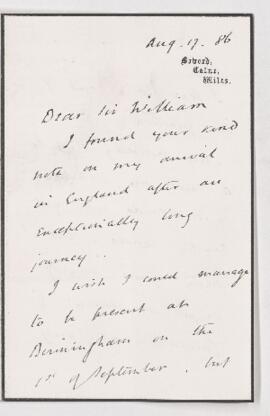 Aug. 17. 86
Bowood,
Calne,
Wilts.
Dear Sir William
I found your kind
note on my arrival
in England after an
exceptionally long
journey.
I wish I could manage
to be present at
Birmingham on the
1st of September, but